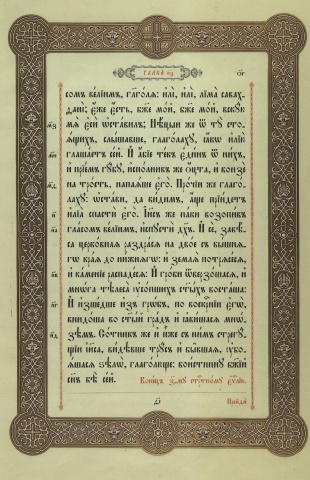 ГЛАВА
сомъ ве́лїимъ, глаго́лѧ: и҆лі̀, и҆лі̀, лїма̀ савах-
ѳанѝ; є҆́же є҆́сть, бж҃е мо́й, бж҃е мо́й, вскꙋ́ю
мѧ̀ є҆сѝ ѡ҆ста́вилъ; Нѣ́цыи же ѿ тꙋ̀ сто-
ѧ́щихъ, слы́шавше, глаго́лахꙋ, ꙗ҆́кѡ и҆лїю̀
глаша́етъ се́й. И҆ а҆́бїе те́къ є҆ди́нъ ѿ ни́хъ,
и҆ прїе́мъ гꙋ́бꙋ, и҆спо́лнивъ же ѻ҆́цта, и҆ вонзе́
на тро́сть, напаѧ́ше є҆го̀. Про́чїи же глаго́-
лахꙋ: ѡ҆ста́ви, да ви́димъ, а҆́ще прїи́детъ
и҆лїа̀ спастѝ є҆го̀. І҆и҃съ же па́ки возопи́въ
гла́сомъ ве́лїимъ, и҆спꙋстѝ дх҃ъ. И҆ сѐ, завѣ́-
са церко́внаѧ раздра́сѧ на дво́е съ вы́шнѧ-
гѡ кра́ѧ до ни́жнѧгѡ: и҆ землѧ̀ потрѧсе́сѧ,
и҆ ка́менїе распаде́сѧ: И҆ гро́би ѿверзо́шасѧ: и҆
мнѡ́га тѣлеса̀ ᲂу҆со́пшихъ ст҃ы́хъ воста́ша:
И҆ и҆зше́дше и҆з̾ грѡ́бъ, по воскрⷭ҇нїи є҆гѡ̀,
внидо́ша во ст҃ы́й гра́дъ и҆ ꙗ҆ви́шасѧ мнѡ́-
зѣмъ. Со́тникъ же и҆ и҆̀же съ ни́мъ стрегꙋ́-
щїи і҆и҃са, ви́дѣвше трꙋ́съ и҆ бы̑вшаѧ, ᲂу҆боѧ́-
шасѧ ѕѣлѡ̀, глаго́люще: вои́стиннꙋ бж҃їй
сн҃ъ бѣ̀ се́й. Коне́цъ з҃мꙋ стрⷭ҇тно́мꙋ є҆ѵⷢ҇лїю.
Прїидѧ́